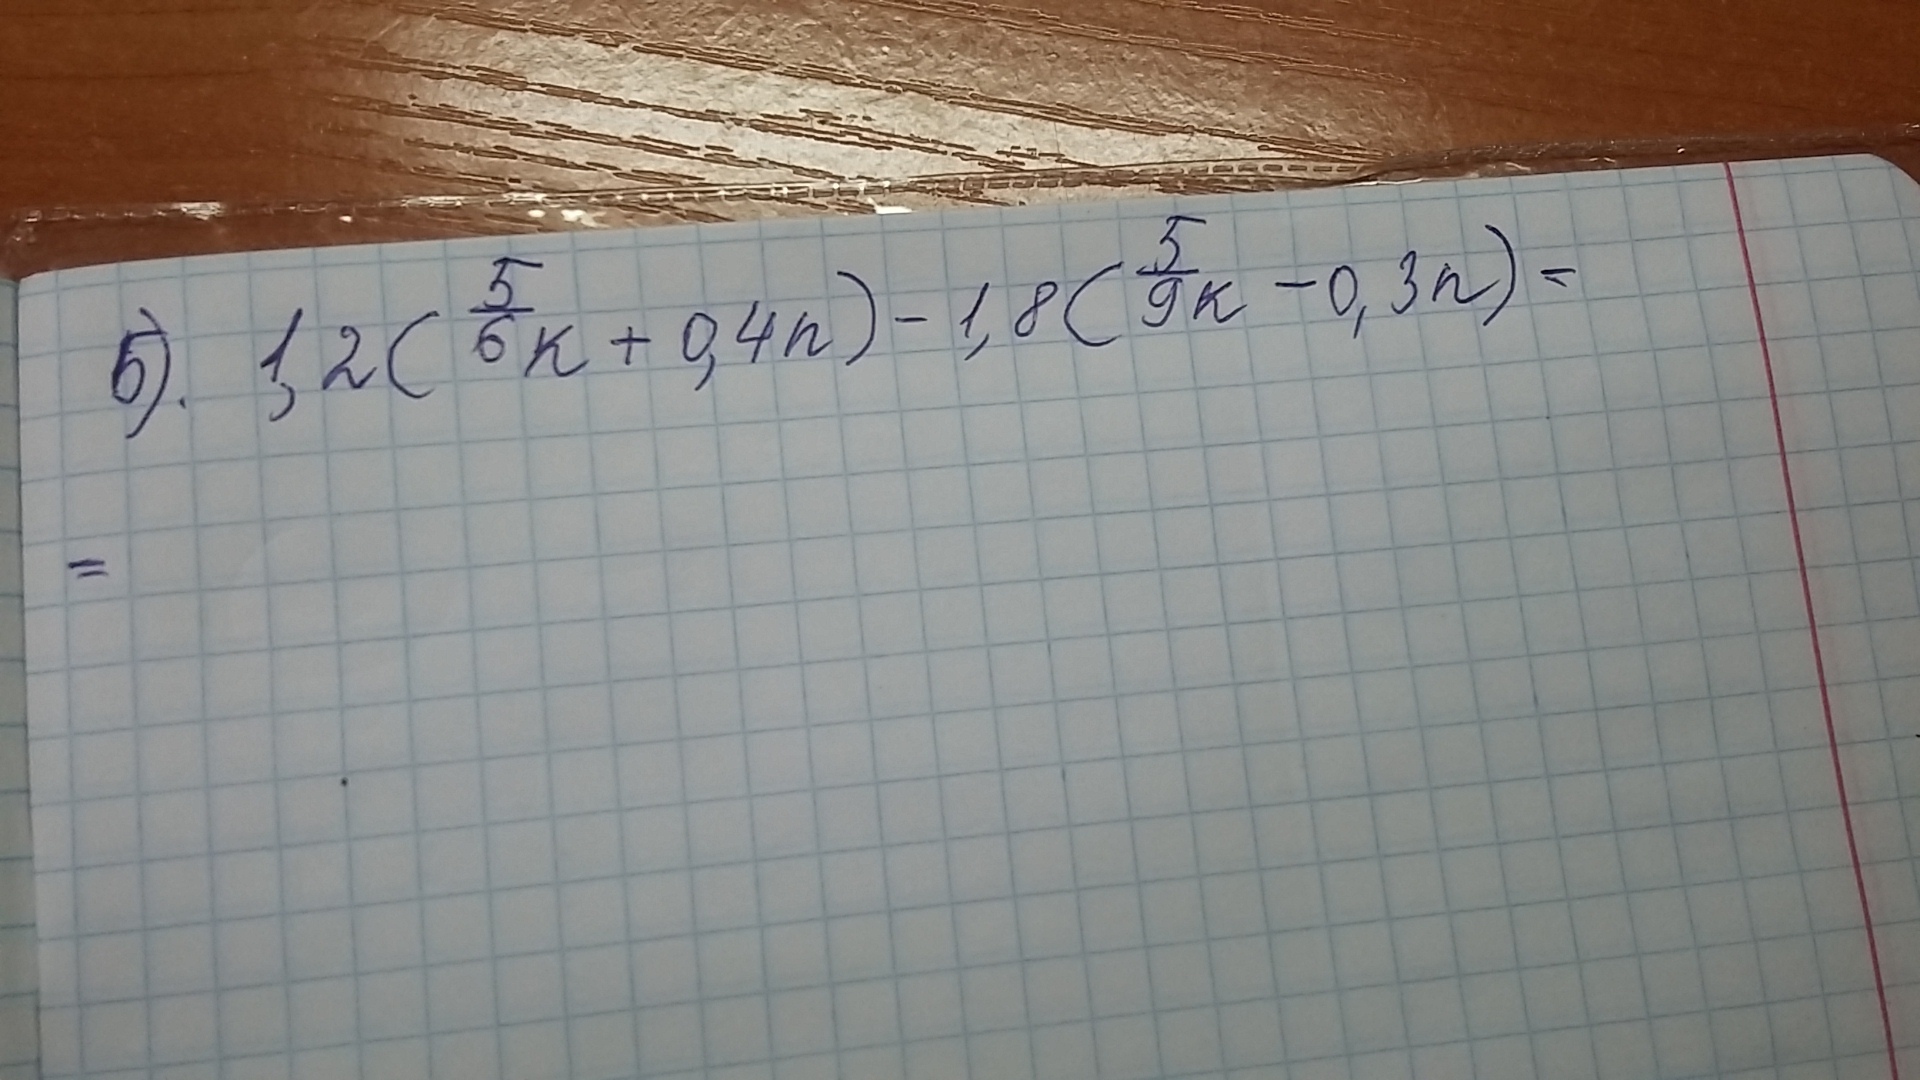 б). 1,2(5/6к + 0,4n) - 1,8(5/9к - 0,3n) =
=